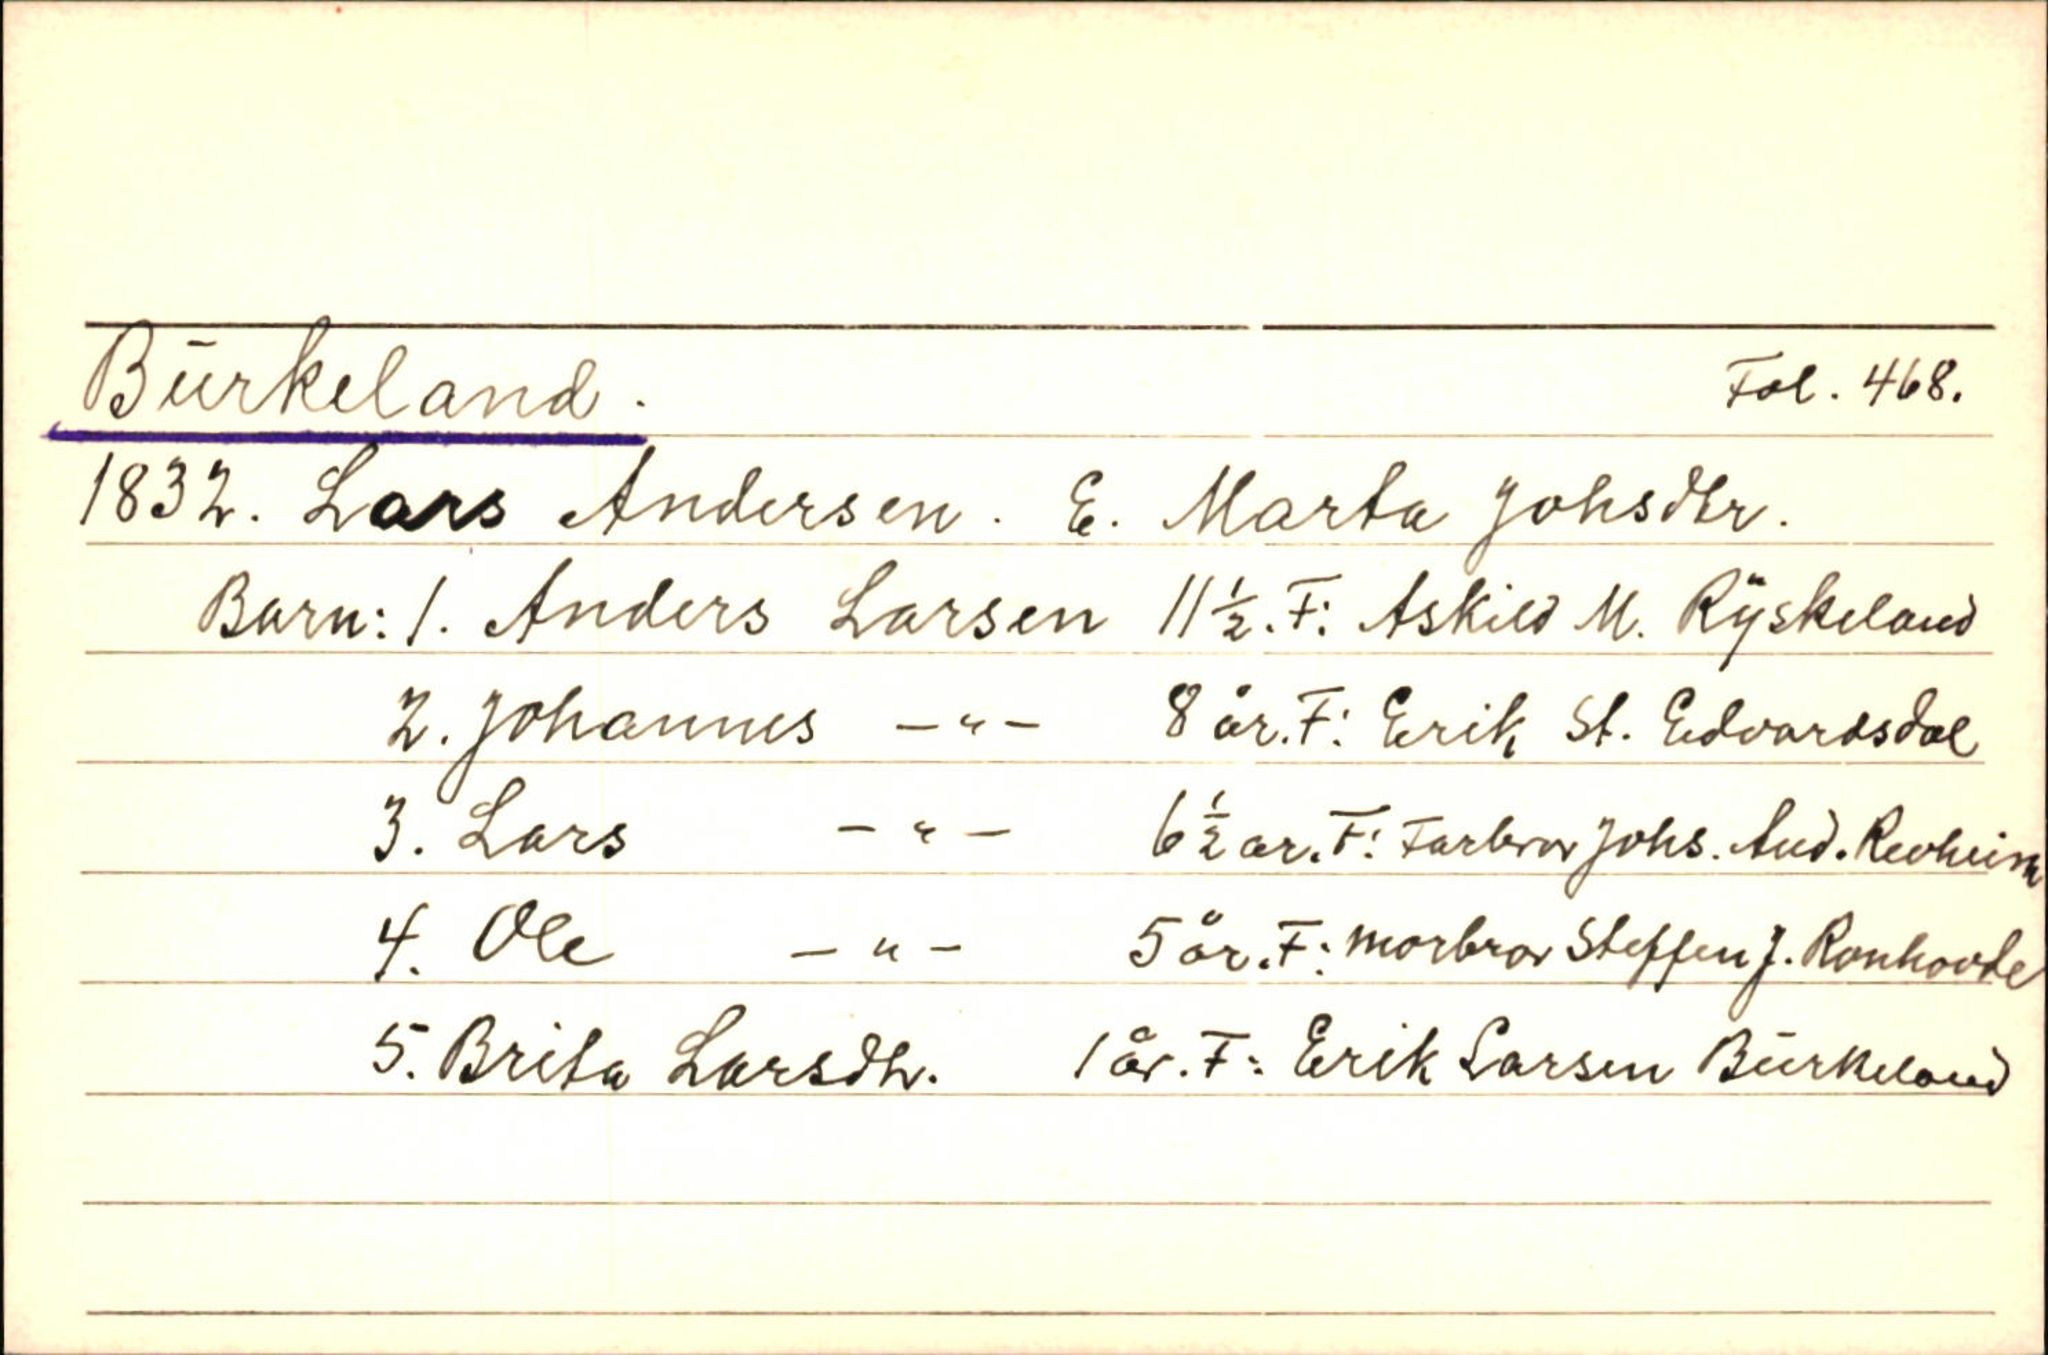 Būrkeland. Fol. 468.
1832. Lars Andersen. E. Marta Johsdtr.
Barn: 1. Anders Larsen 11½. F: Askild M. Rÿskeland
2. Johannes -"- 8 år. F: Erik St. Edvardsdal
3. Lars -"- 6½ ar. F: Farbror Johs. And. Revheim
4. Ole -"- 5 år. F: morbror Steffen J. Ronhovde
5. Brita Larsdtr. 1 år. F: Erik Larsen Būrkeland